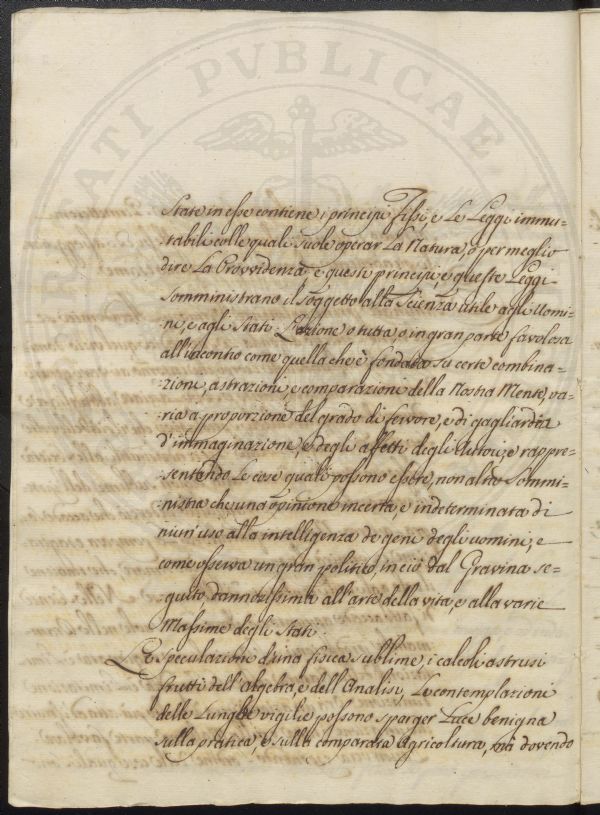 PVBLICAE
state in esse contiene i principi fissi, e le Leggi immu=
tabili colle quali suole operar la Natura, o per meglio
dire la Provvidenza, e questi principi, e queste Leggi
somministrano il soggetto alla scienza utile agli Uomi=
ni, e agli stati. L'azione o tutta, o in gran parte favolosa
all'incontro come quella che è fondata su certe combina=
zioni, astrazioni, e comparazioni della nostra Mente, va=
ria a proporzione del grado di fervore, e di gagliardia
d'immaginazione, e degli affetti degli Autori, e rappre=
sentando le cose quali possono essere, non altro sommi=
nistra che una opinione incerta, e indeterminata di
niun'uso alla intelligenza de geni degli uomini, e
come osserva un gran politico, in ciò dal Gravina se=
guito dannosissima all'arte della vita, e alla varie
Massime degli stati.
Le speculazioni d'una fisica sublime, i calcoli astrusi
frutti dell'algebra, e dell'Analisi, le contemplazioni
delle lunghe vigilie possono sparger luce benigna
sulla pratica, e sulla comparata Agricoltura, mà dovendo